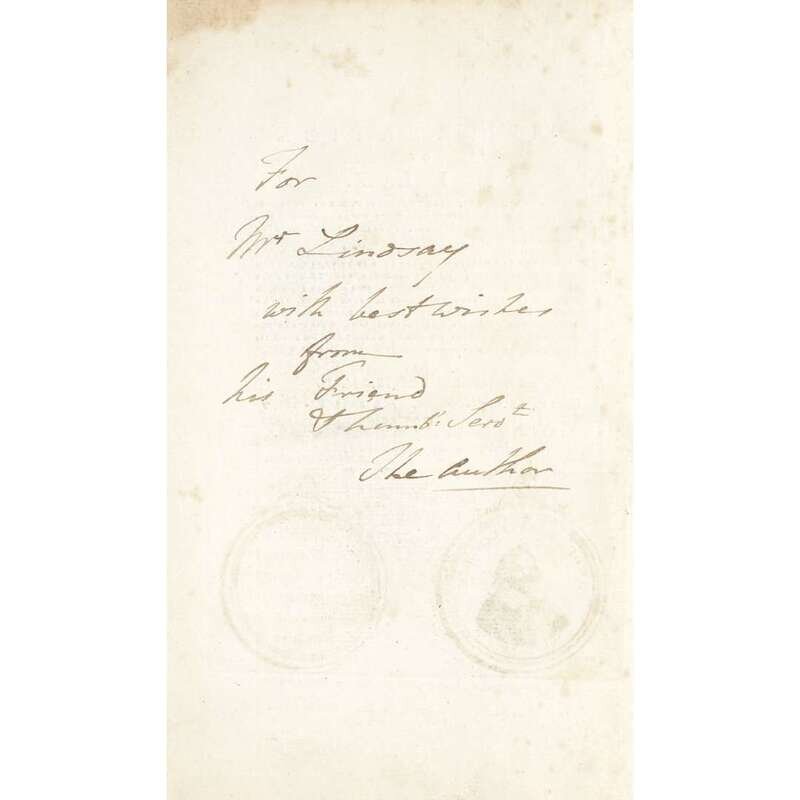 For
Mr Lindsay
with best wishes
from
his Friend
& humbl: Servt
The author